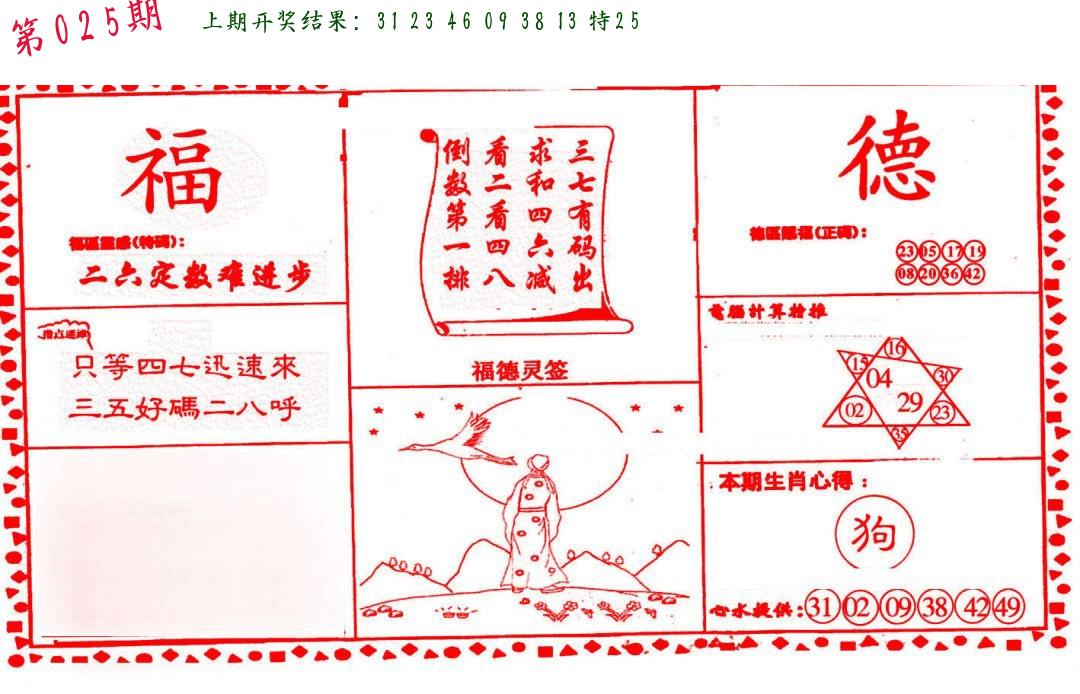 第025期
上期开奖结果: 31 23 46 09 38 13 特25
福
福區靈感(特碼):
二六定数难进步
指点迷津
只等四七迅速來
三五好碼二八呼
三七有码出
求和四六减
看二看四八
倒数第一排
福德灵签
德
德區賜福(正碼):
23 05 17 19
08 20 36 42
電腦計算特推
16
15 04 30
02 29 23
35
本期生肖心得:
狗
心水提供: 31 02 09 38 42 49